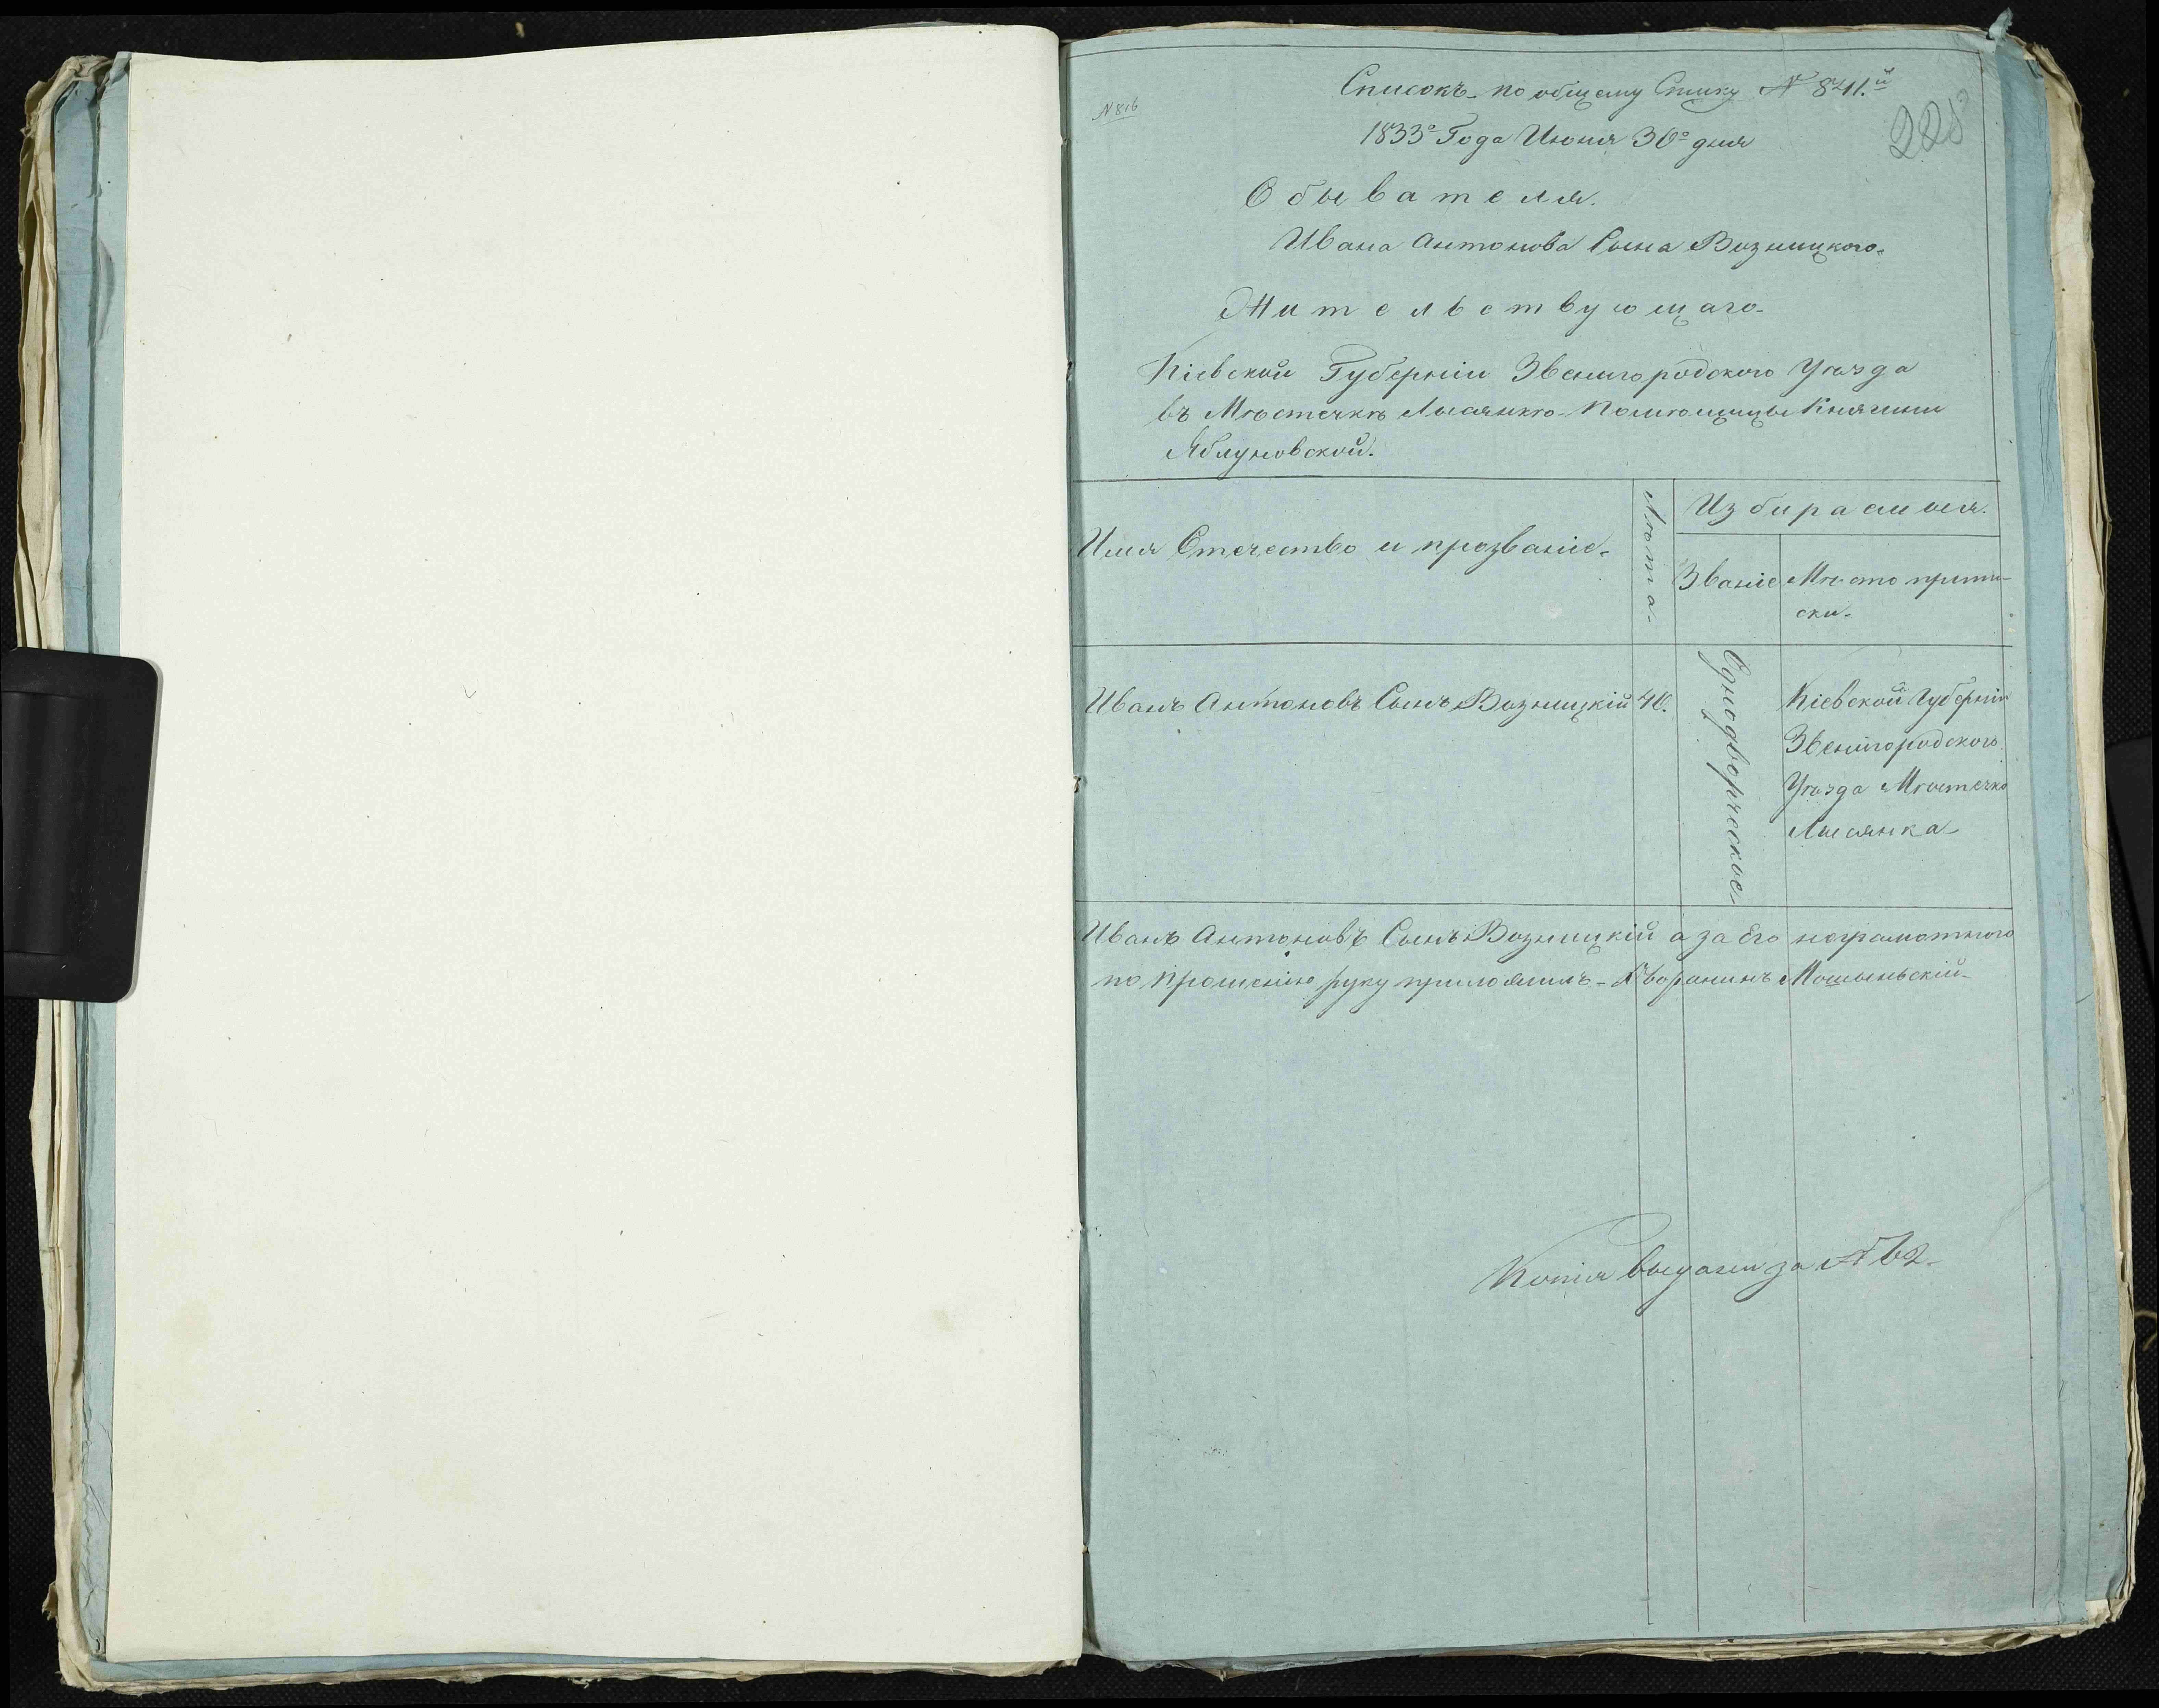 Списокъ по общему Списку № 841.й
№ 816
228
1833го Года Июня 30го дня
Обывателя.
Ивана Антонова Сына Возницкого
Жительствующаго
Кіевской Губерніи Звенигородского Уѣзда
въ Мѣстечкѣ Лисянкѣ Помѣщицы Княгини
Яблуновской.
Имя Отечество и прозваніе
Лѣта
Избираемыя.
Званіе
Мѣсто припи-
ски
Иванъ Антоновъ Сынъ Возницкій
40.
Однодворческое
Кіевской Губерніи
Звенигородского
Уѣзда Мѣстечко
Лисянка
Иванъ Антоновъ Сынъ Возницкій а за Его неграмотного
по прошенію руку приложилъ Дворанинъ
Копія выдана за №